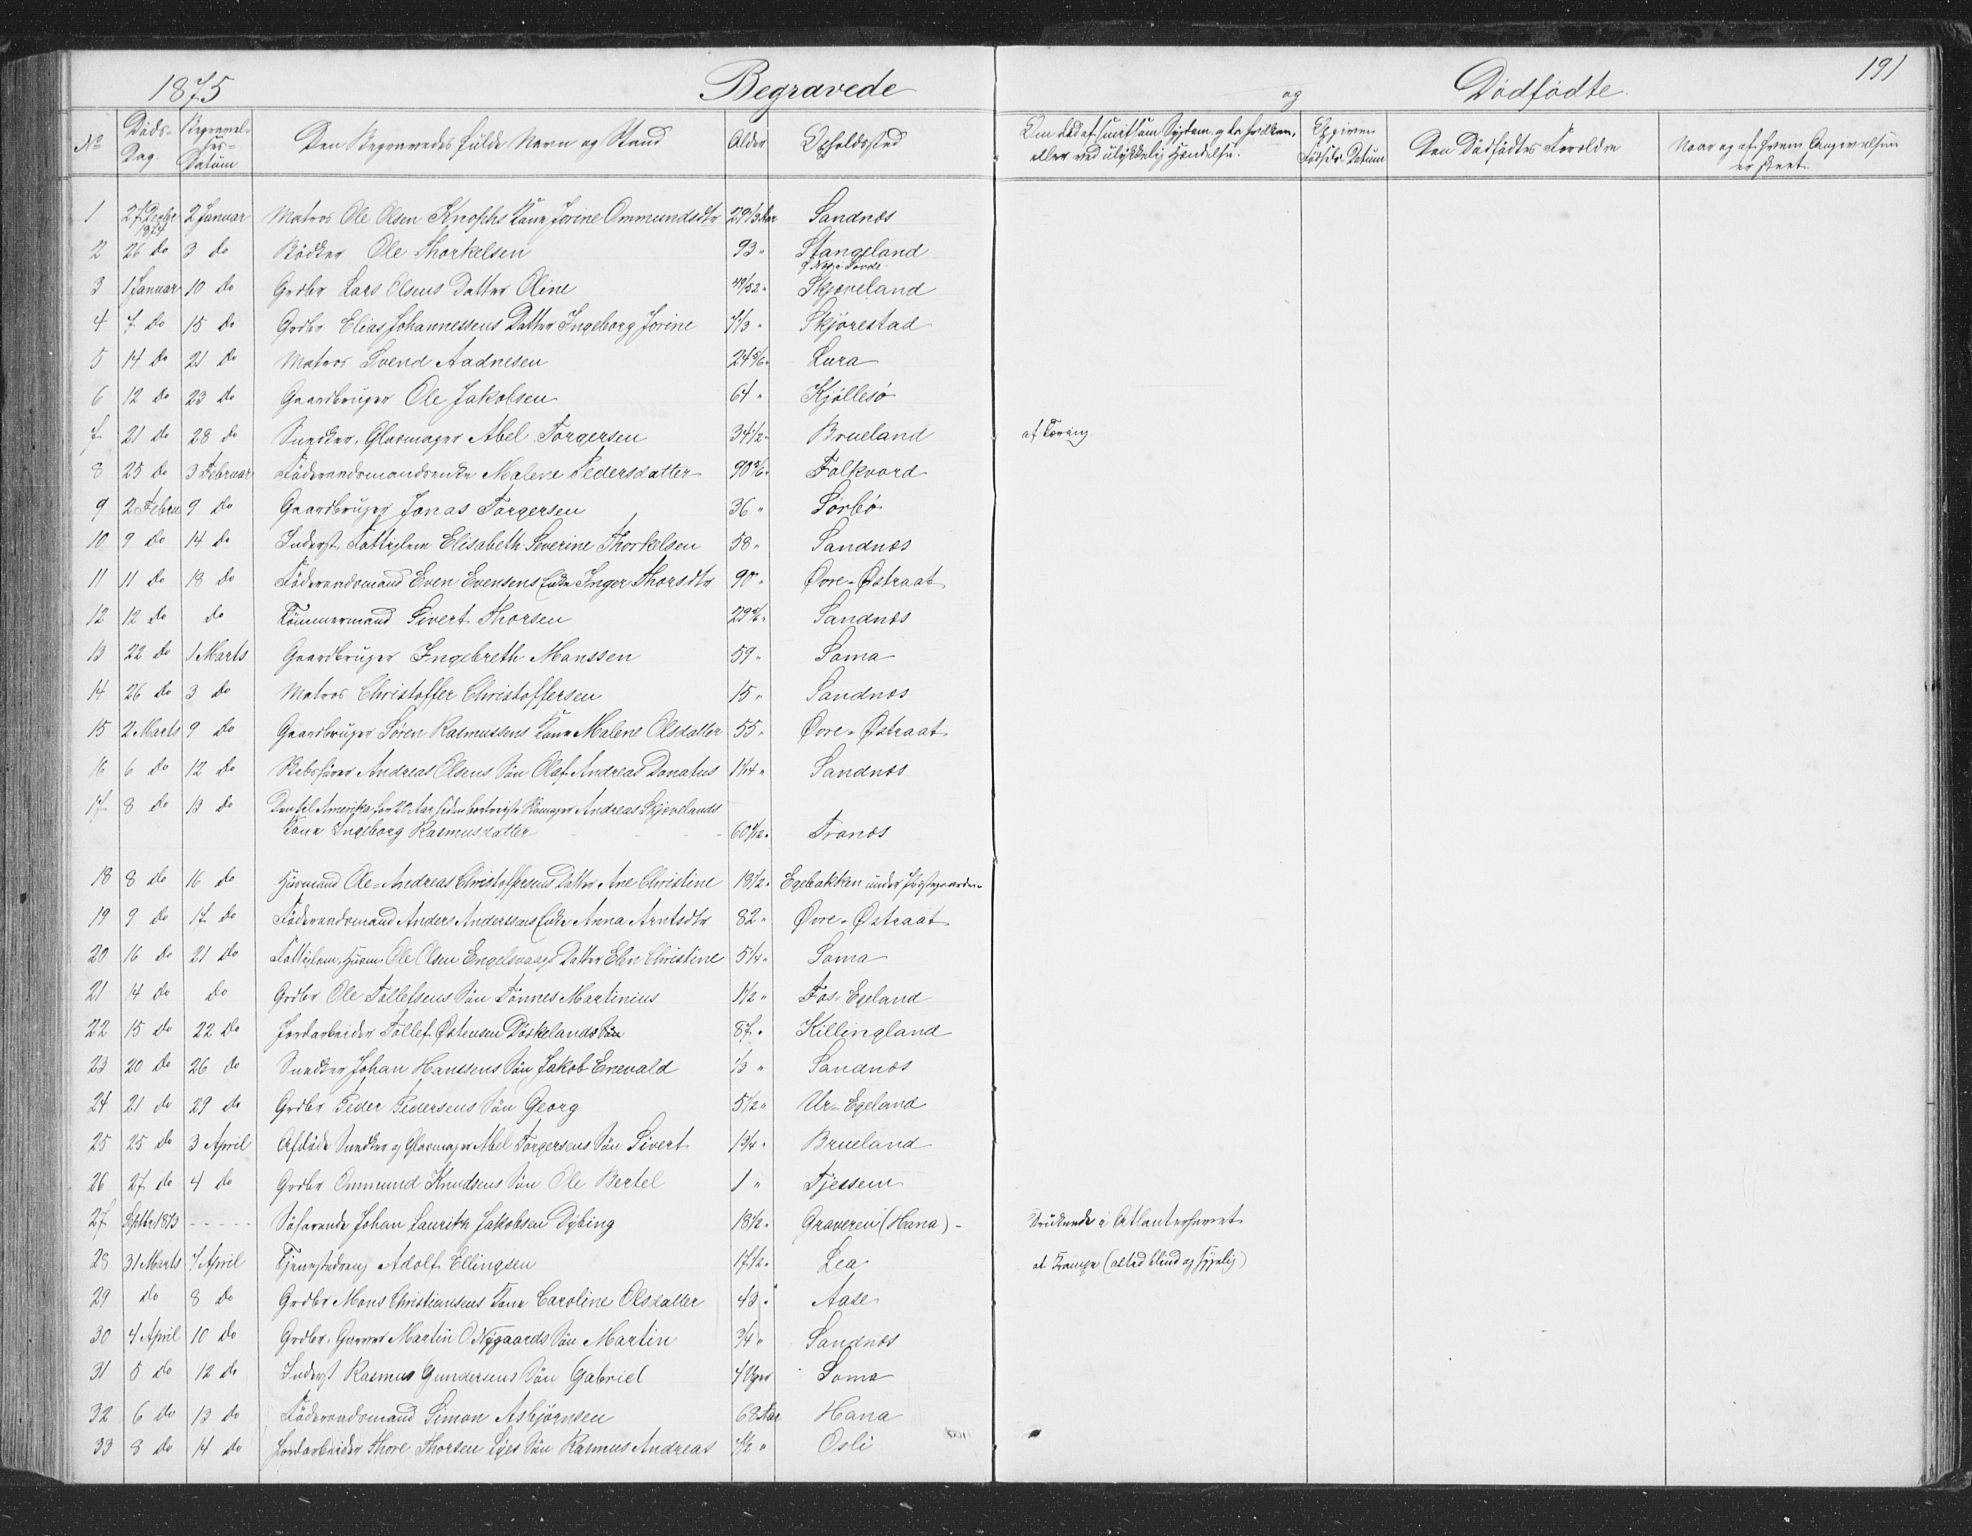 1875 Begravede og Dødfødte. 191
No Døds-Dag. Begravel-ses-Datum Den Begravedes fulde Navn og Stand Alder Opholdssted Om død af smitsom Sygdom, og da hvilken, eller ved ulykkelig Hændelse. Opgiven Fødsels Datum Den Dødfødtes Forældre Naar og af hvem Angivelsen er skeet.
1 27 Decbr 1874 2 Januar Matros Ole Olsen Knophs Kone Jorine Ommundsdtr 29 1/3 Aar Sandnæs
2 26 do 3 do Bødker Ole Thorkelsen 93 " Stangeland
3 1 Januar 10 do Grdbr Lars Olsens Datter Oline 49/52 " Skjæveland
4 7 do 15 do Grdbr Elias Johannessens Datter Ingeborg Jorine Skjørestad
5 14 do 21 do Matros Svend Aadnesen 24 5/6 " Lura
6 12 do 23 do Gaardbruger Ole Jakobsen 64 " Kjøllesø
7 21 do 28 do Snedker, Glasmager Abel Torgersen 34 1/2 " Brueland af Tæring.
8 25 do 3 Februar Føderaadsmandsenke Malene Pedersdatter 90 5/6 " Folkvord
9 2 Febru 9 do Gaardbruger Jonas Torgersen 36 " Sørbø
10 9 do 14 do Inderst, Fattiglem Elisabeth Severine Thorkelsen 58 " Sandnæs
11 11 do 18 do Føderaadsmand Even Evensens Enke Inger Thorsdtr 90 " Øvre-Østraat
12 12 do do Tømmermand Sivert Thorsen Sandnæs
13 22 do 1 Marts Gaardbruger Ingebreth Monssen 59 " Soma
14 26 do 3 do Matros Christoffer Christoffersen 15 " Sandnæs
15 2 Marts 9 do Gaardbruger Søren Rasmussens Kone Malene Olsdatter 55 " Øvre-Østraat
16 6 do 12 do Andreas Olsens Søn Olaf Andreas Donatus 1 1/4 " Sandnæs
17 8 do 13 do Den til Amerika for 20 Aar siden bortreiste Andreas Skjævelands
Kone Ingeborg Rasmusdatter 60 1/2 " Tronæs
18 8 do 16 do Huusmand Ole-Andreas Christoffersens Datter Ane Christine 18 1/2 " Egebakken under Præstegaarden
19 9 do 17 do Føderaadsmand Anders Anderssens Enke Anna Arntsdtr 82 " Øvre-Østraat
20 16 do 21 do Fattiglem, Husm. Ole Olsen Engelsvaags Datter Elen Christine 5 1/4 " Soma
21 14 do do Grdbr Ole Tollefsens Søn Tønnes Martinius 1 1/2 " Fos-Egeland
22 15 do 22 do Jordarbeider Tollef Østensen Døskelands Søn 87 " Killingland
23 20 do 26 do Snedker Johan Hanssens Søn Jakob Enevald 1/3 " Sandnæs
24 21 do 29 do Grdbr Peder Pedersens Søn Georg 5 1/2 " Ur-Egeland
25 25 do 3 April Afdøde Snedker og Glasmager Abel Torgersens Søn Sivert 1 3/4 " Brueland
26 27 do 4 do Grdbr Ommund Knudsens Søn Ole Bertel 1 " Tjessem
27 Septbr 1873 - - - - - Søfarende Johan Lauritz Jakobsen Dybing 18 1/2 " Graveren (Hana) - Druknede i Atlanterhavet
28 31 Marts 7 April Tjenestedreng Adolf Ellingsen 17 1/2 " Lea af Krampe (altid blind og sygelig)
29 do 8 do Grdbr Mons Christiansens Kone Caroline Olsdatter 43 " Aase
30 4 April 10 do Grdbr, Garver Martin O. Nygaards Søn Martin 3/4 " Sandnæs
31 5 do 12 do Inderst Rasmus Gundersens Søn Gabriel 4 Uger Soma
32 6 do 13 do Føderaadsmand Simon Asbjørnsen 68 Aar Hana
33 8 do 14 do Jordarbeider Thore Thorsen Lyes Søn Rasmus Andreas Osli